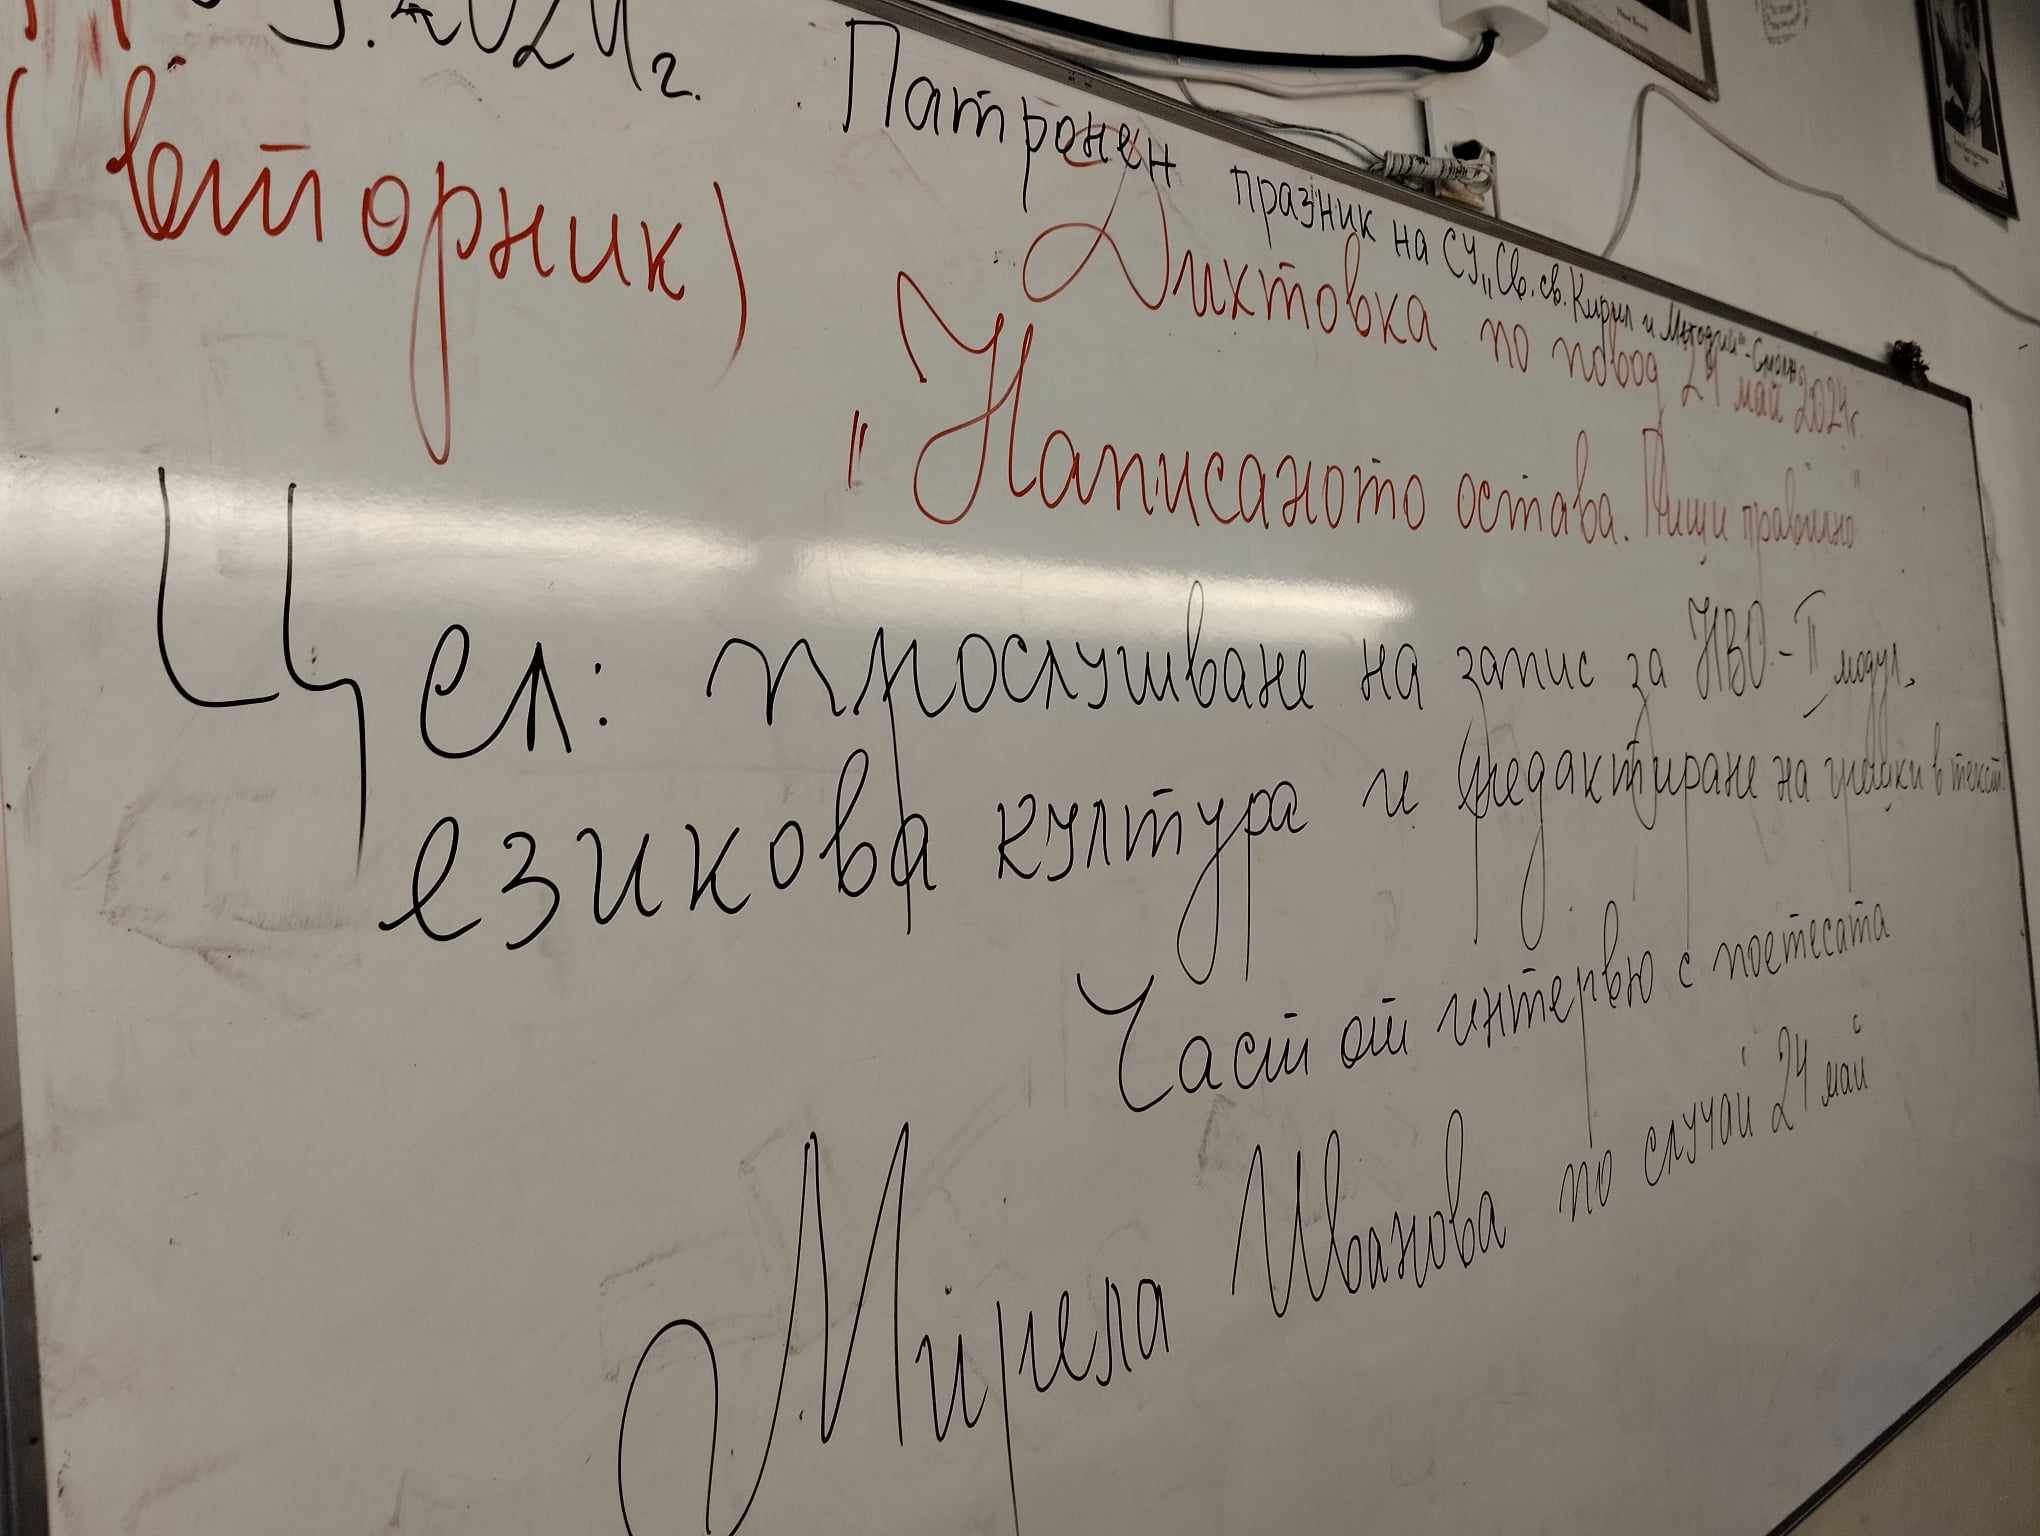 5.2024г.
(вторник)
Патронен празник на СУ „Св. св. Кирил и Методий" - Смолян
Диктовка по повод 24 май 2024г.
"Написаното остава. Пиши правилно"
Цел: прослушване на запис за НВО - II модул,
езикова култура и редактиране на грешки в текст
Част от интервю с поетесата
Мирела Иванова по случай 24 май